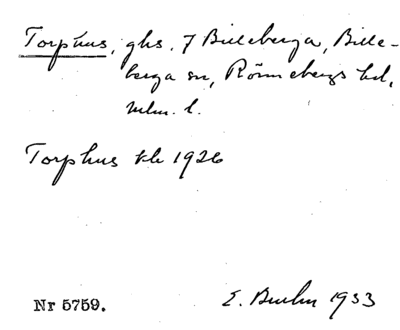 Torphus, ghs. 7 Billeberga, Bille-
berga sn, Rönnebergs hd,
Mlm. l.
Torphus tlr 1926
Nr 5759.
E. 1933